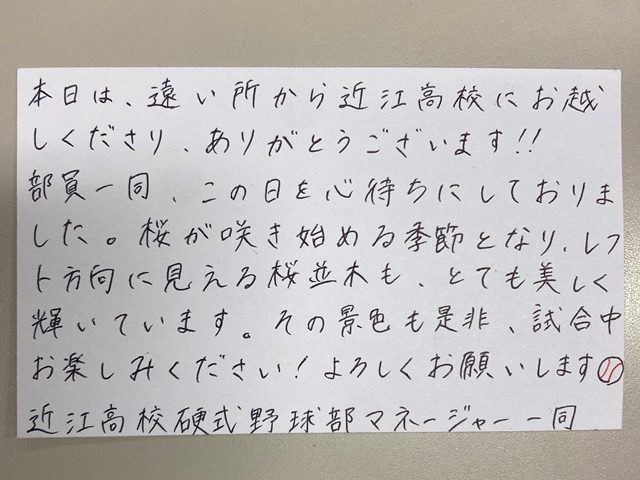 本日は、遠い所から近江高校にお越
しくださり、ありがとうございます!!
部員一同、この日を心待ちにしておりま
した。桜が咲き始める季節となり、レフ
ト方向に見える桜並木も、とても美しく
輝いています。その景色も是非、試合中
お楽しみください!よろしくお願いします
近江高校硬式野球部マネージャー一同